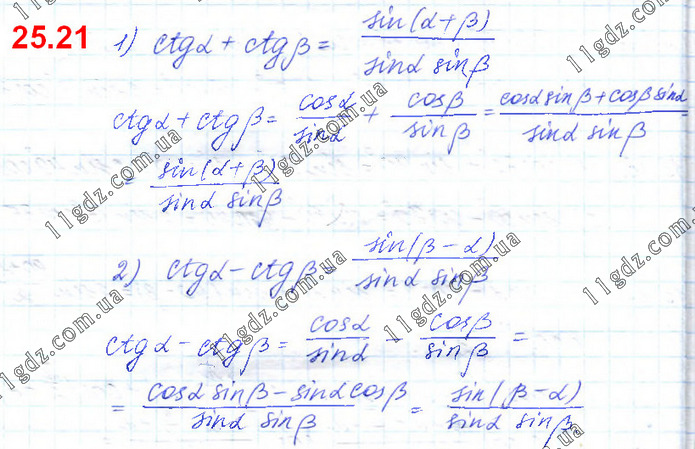 25.21
1) ctgα + ctgβ = sin(α+β) / sinα sinβ
ctgα + ctgβ = cosα / sinα + cosβ / sinβ = cosα sinβ + cosβ sinα / sinα sinβ =
= sin(α+β) / sinα sinβ
2) ctgα - ctgβ = sin(β-α) / sinα sinβ
ctgα - ctgβ = cosα / sinα - cosβ / sinβ =
= cosα sinβ - sinα cosβ / sinα sinβ = sin(β-α) / sinα sinβ
11gdz.com.ua
11gdz.com.ua
11gdz.com.ua
11gdz.com.ua
11gdz.com.ua
11gdz.com.ua
11gdz.com.ua
11gdz.com.ua